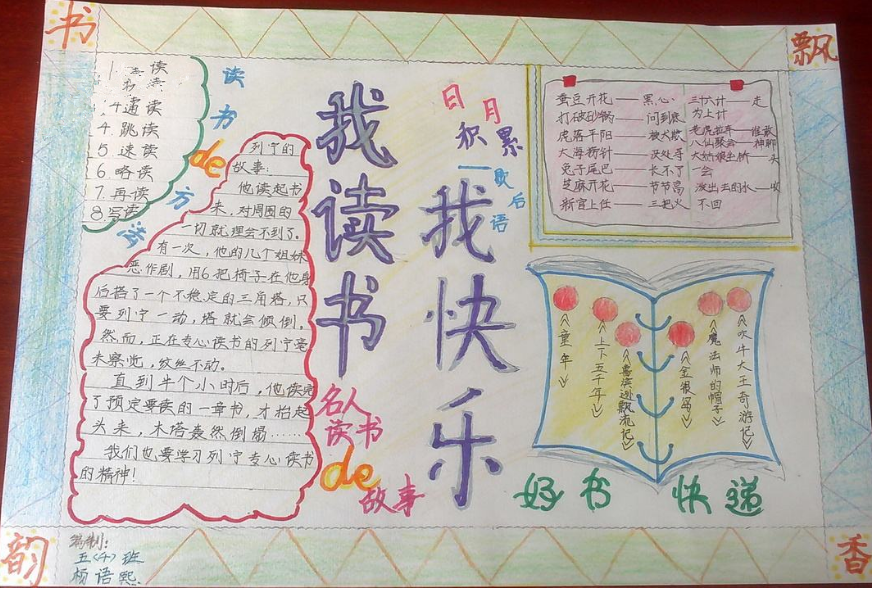 书
飘
读
4 通读
4 跳读
5 速读
6 略读
7. 再读
8. 写读
读书de方法
列宁的
故事:
他读起书
来，对周围的
一切就理会不到了。
有一次，他的几个姐妹
恶作剧，用6把椅子在他身
后搭了一个不稳定的三角塔，只
要列宁一动，塔就会倾倒。
然而，正在专心读书的列宁毫
未察觉，纹丝不动。
直到半个小时后，他读完
了预定要读的一章书，才抬起
头来，木塔轰然倒塌……
我们也要学习列宁专心读书
的精神!
名人
读书
de
故事
我读书
我快乐
日月
积累
—歇后语
蚕豆开花——黑心
打破砂锅——问到底
虎落平阳——被犬欺
大海捞针——没处寻
兔子尾巴——长不了
芝麻开花——节节高
新官上任——三把火
三十六计——走
为上计
老虎拉车——谁敢
八仙聚会——神聊
大姑娘坐轿——头
会
泼出去的水——收
不回
《童年》
《上下五千年》
《鲁滨逊飘流记》
《金银岛》
《魔法师的帽子》
《吹牛大王奇游记》
好书 快递
韵
编制:
五〈4〉班
杨语熙
香